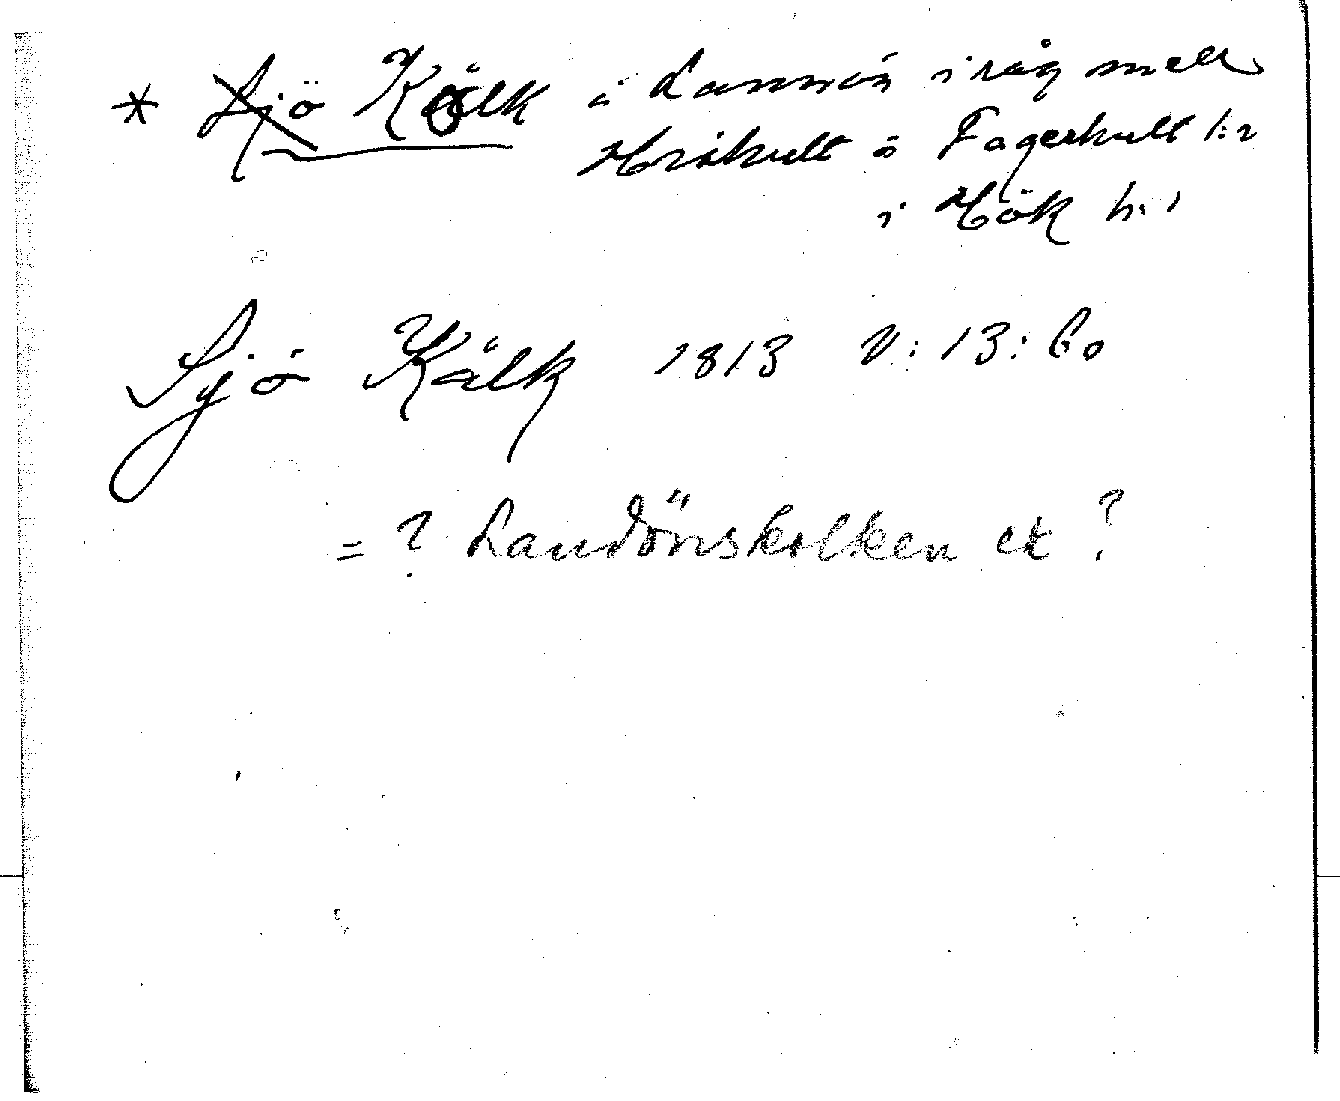 * Sjö Kölk i Lannön i råg mell
Hråkult o Fagerhult 1:2
i Hök h: 1
Sjö Kälk 1813 V: 13: 60
= ? Landönskolken et ?